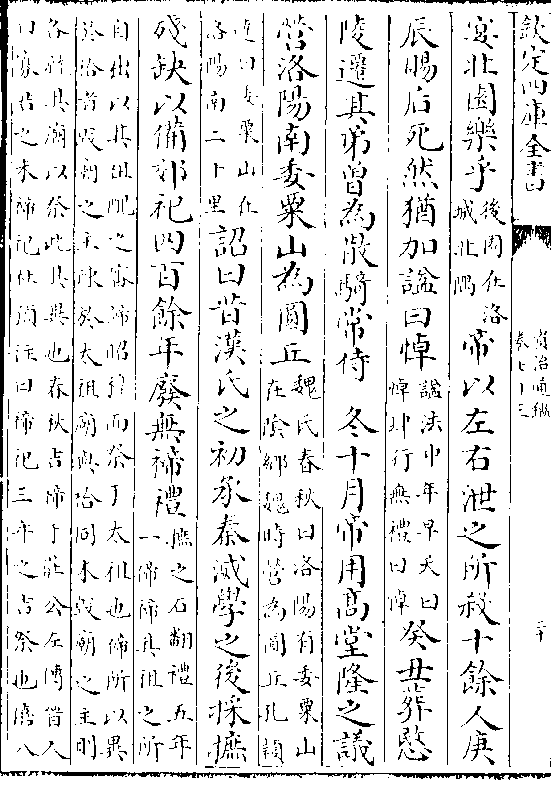 欽定四庫全書
資治通鑑
卷七十三
宴北園樂乎後園在洛城北隅帝以左右泄之所殺十餘人庚
辰賜后死然猶加諡曰悼諡法中年早夭曰悼肆行無禮曰悼癸丑葬愍
陵遷其弟曾為散騎常侍 冬十月帝用高堂隆之議
營洛陽南委粟山為圓丘魏氏春秋曰洛陽有委粟山在隂鄉魏時營為圜丘孔頴
達曰委粟山在洛陽南二十里詔曰昔漢氏之初承秦滅學之後採摭
殘缺以備郊祀四百餘年廢無禘禮摭之石翻禮五年一禘禘其祖之所
自出以其祖配之審禘昭穆而祭于太祖也禘所以異於祫者毀廟之主陳於太祖廟與祫同未毀廟之主則
各就其廟以祭此其異也春秋吉禘于莊公左傳晉人曰寡君之未禘祀杜預注曰禘祀三年之吉祭也僖八